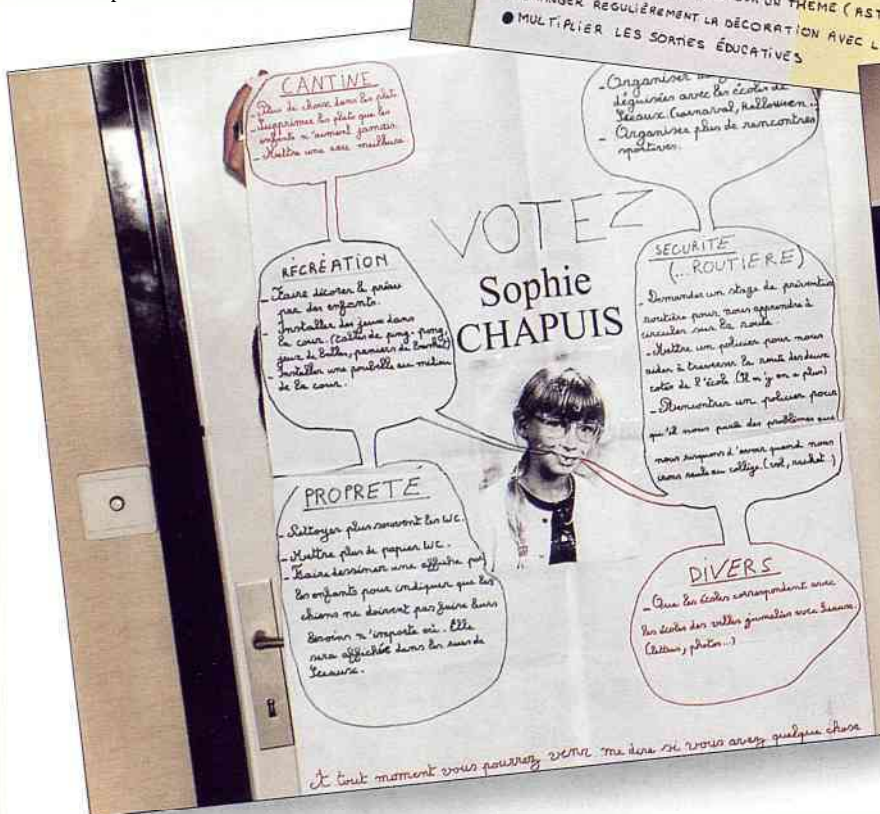 UN THÈME (AST
CHANGER RÉGULIÈREMENT LA DÉCORATION AVEC L
● MULTIPLIER LES SORTIES ÉDUCATIVES
CANTINE
- Plus de choix dans les plats.
- Supprimer les plats que les
enfants n'aiment jamais.
- Mettre une eau meilleure.
- Organiser
déguisées avec les écoles de
Sceaux. (carnaval, halloween...)
- Organiser plus de rencontres
sportives.
VOTEZ
Sophie
CHAPUIS
RÉCRÉATION
- Faire décorer le préau
par des enfants.
- Installer des jeux dans
la cour. (tables de ping-pong,
jeux de balles, paniers de basket)
- Installer une poubelle au milieu
de la cour.
SECURITÉ
(...ROUTIERE)
- Demander un stage de prévention
routière pour nous apprendre à
circuler sur la route.
- Mettre un policier pour nous
aider à traverser la route des deux
cotés de l'école (Il n'y en a plus)
- Rencontrer un policier pour
qu'il nous parle des problèmes que
nous risquons d'avoir quand nous
irons seuls au collège. (vol, racket..)
PROPRETÉ
- Nettoyer plus souvent les WC.
- Mettre plus de papier WC.
- Faire dessiner une affiche par
les enfants pour indiquer que les
chiens ne doivent pas faire leurs
besoins n'importe où. Elle
sera affichée dans les rues de
Sceaux.
DIVERS
- Que les écoles correspondent avec
les écoles des villes jumelées avec Sceaux.
(lettres, photos...)
A tout moment vous pourrez venir me dire si vous avez quelque chose